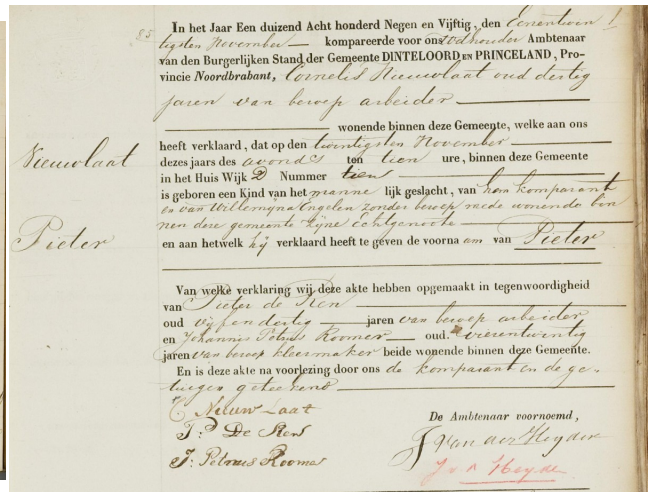 85
In het Jaar Een duizend Acht honderd Negen en Vijftig, den Eenentwin
tigsten November kompareerde voor ons Wethouder Ambtenaar
van den Burgerlijken Stand der Gemeente DINTELOORD EN PRINCELAND, Pro-
vincie Noordbrabant, Cornelis Nieuwlaat oud dertig
jaren van beroep arbeider
wonende binnen deze Gemeente, welke aan ons
heeft verklaard, dat op den twintigsten November
dezes jaars des avonds ten tien ure, binnen deze Gemeente
in het Huis Wijk D Nummer tien
is geboren een Kind van het manne lijk geslacht, van hem komparant
en van Willemijna Engelen zonder beroep mede wonende bin
nen deze gemeente zijne echtgenoote
en aan hetwelk hij verklaard heeft te geven de voorna am van Pieter
Nieuwlaat
Pieter
Van welke verklaring wij deze akte hebben opgemaakt in tegenwoordigheid
van Pieter de Ren
oud vijfendertig jaren van beroep arbeider
en Johannis Petrus Roomer oud vierentwintig
jaren van beroep kleermaker beide wonende binnen deze Gemeente.
En is deze akte na voorlezing door ons de komparant en de ge-
tuigen geteekend
C Nieuwlaat
P: De Ren
J: Petrus Roomer
De Ambtenaar voornoemd,
J van der Heyden